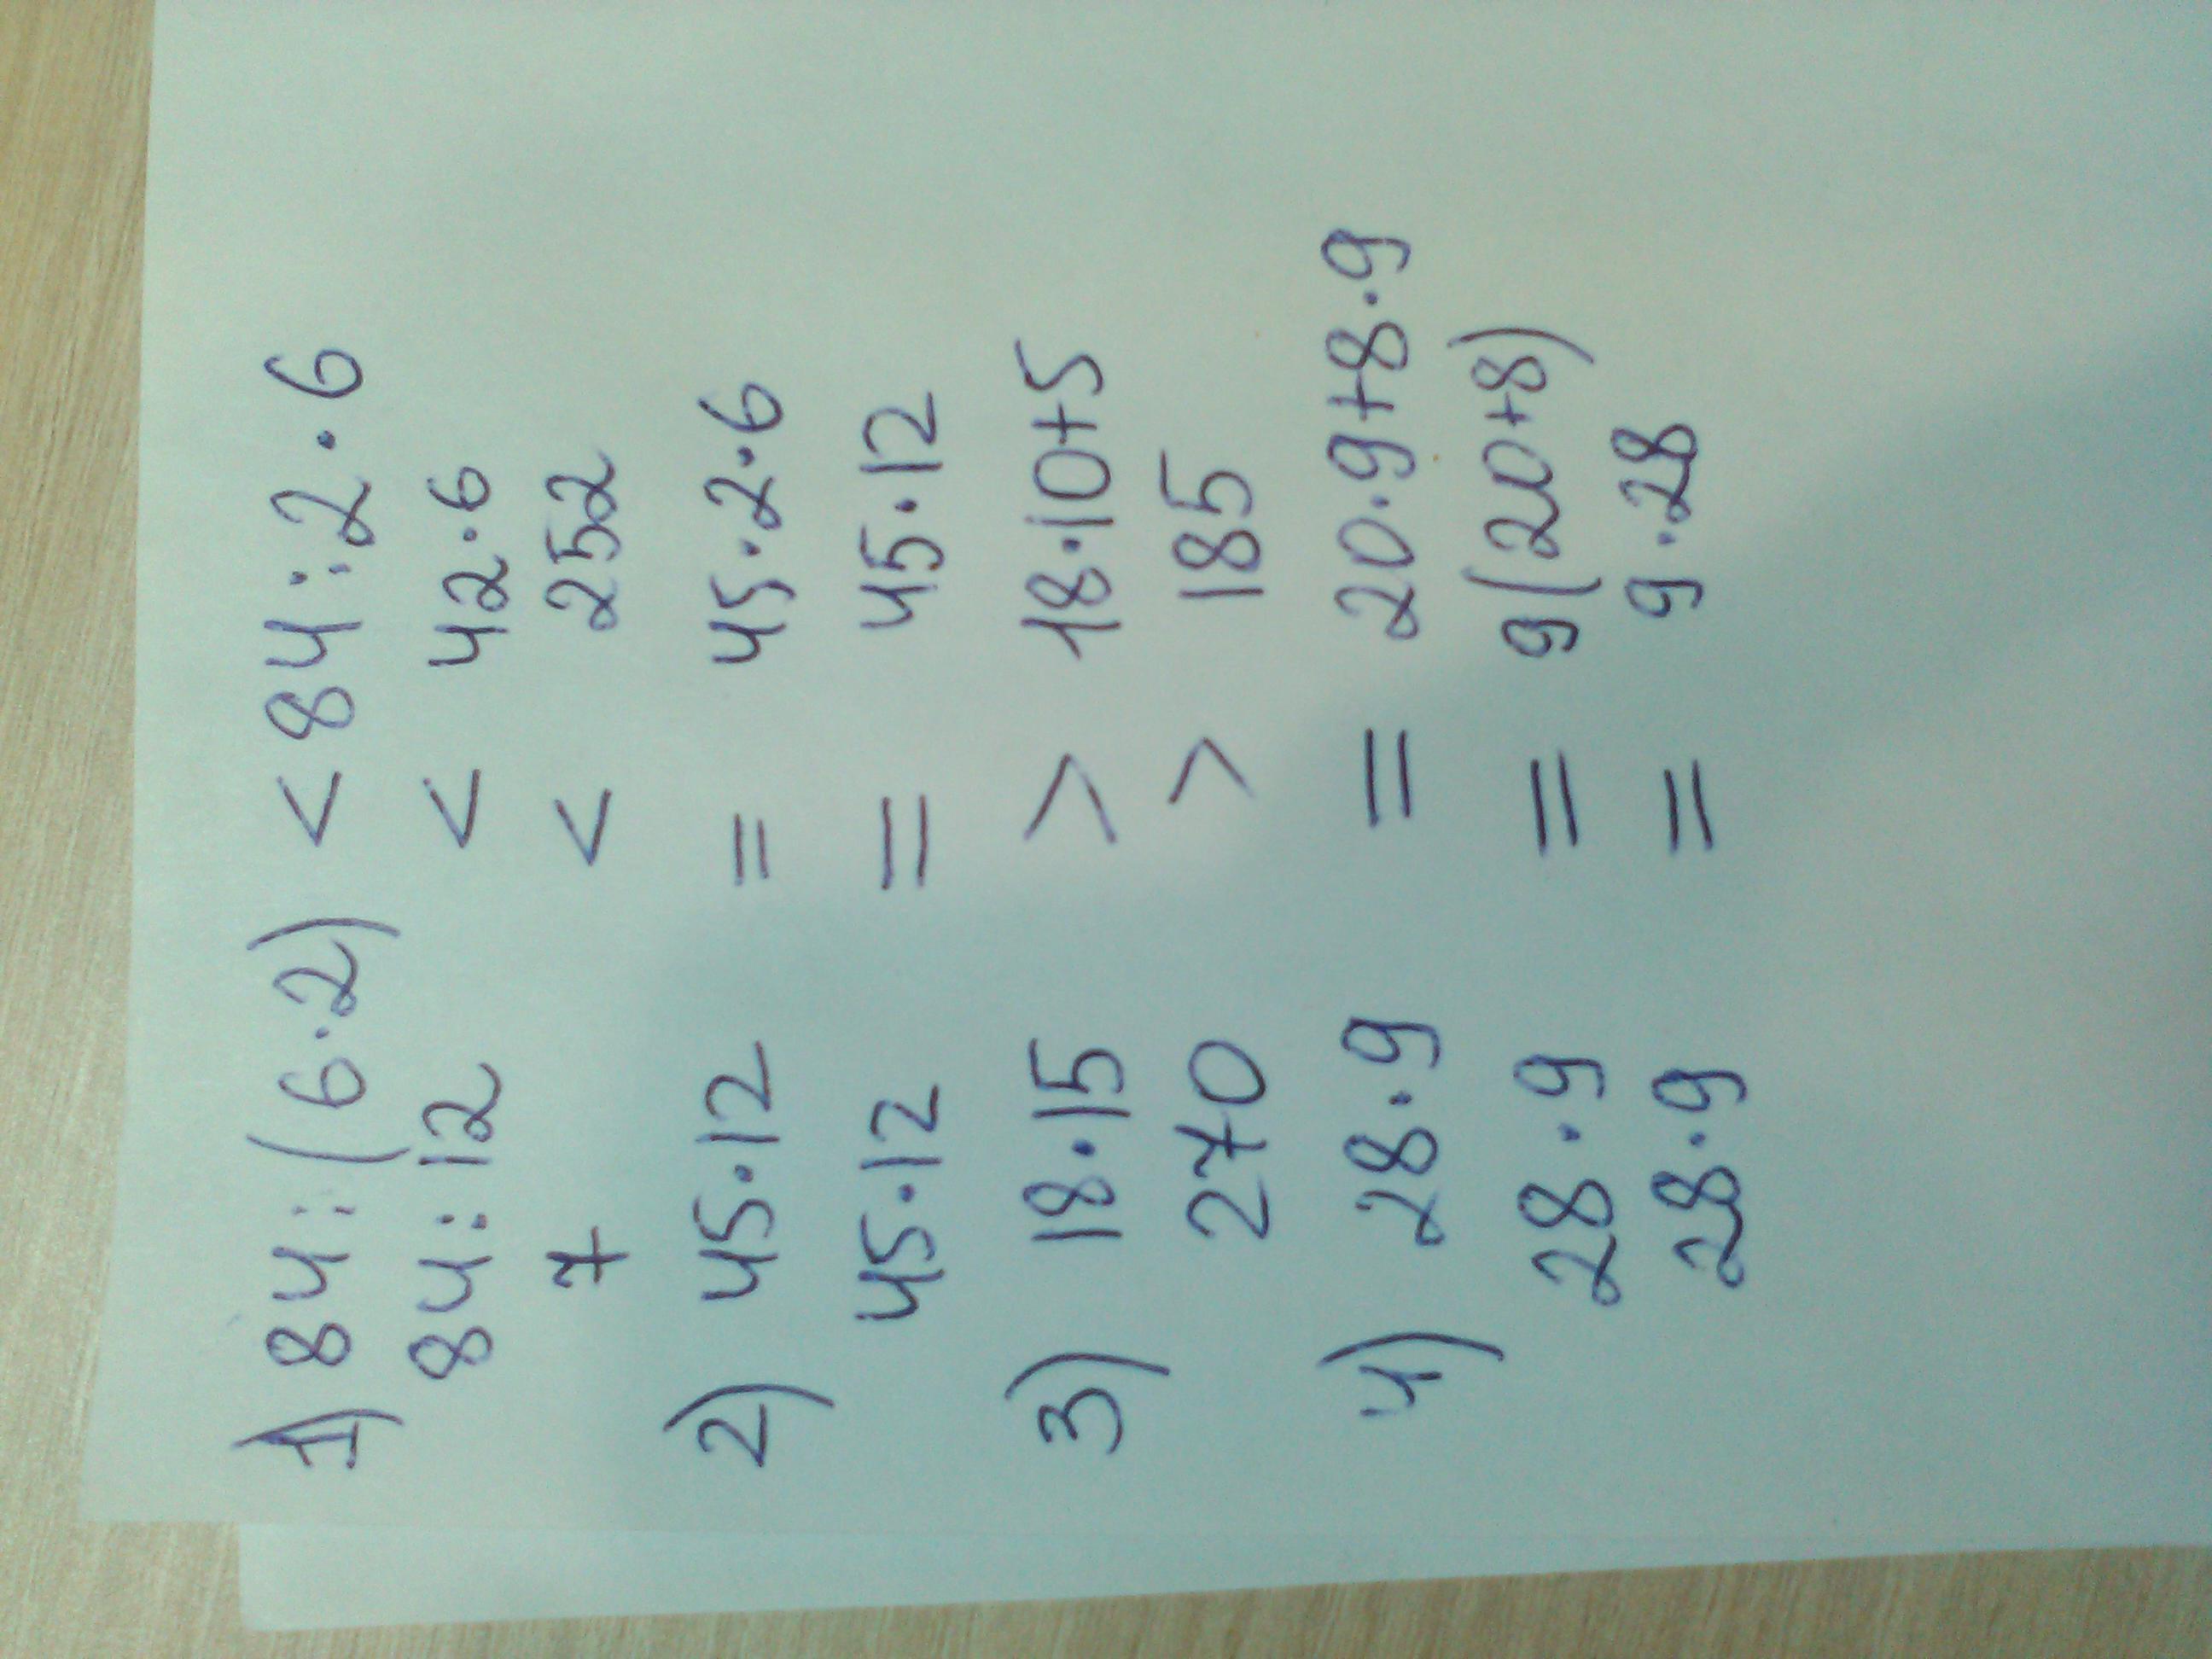 1) 84:(6·2) < 84:2·6
84:12 < 42·6
7 < 252
2) 45·12 = 45·2·6
45·12 = 45·12
3) 18·15 > 18·10+5
270 > 185
4) 28·9 = 20·9+8·9
28·9 = 9(20+8)
28·9 = 9·28